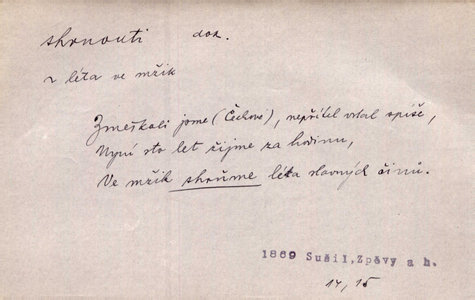 shrnouti dok.
~ léta ve mžik
Zmeškali jsme (Čechové), nepřítel vstal spíše,
Nyní sto let žijme za hodinu,
Ve mžik shrňme léta slavných činů.
1869 Sušil, Zpěvy a h.
14, 15